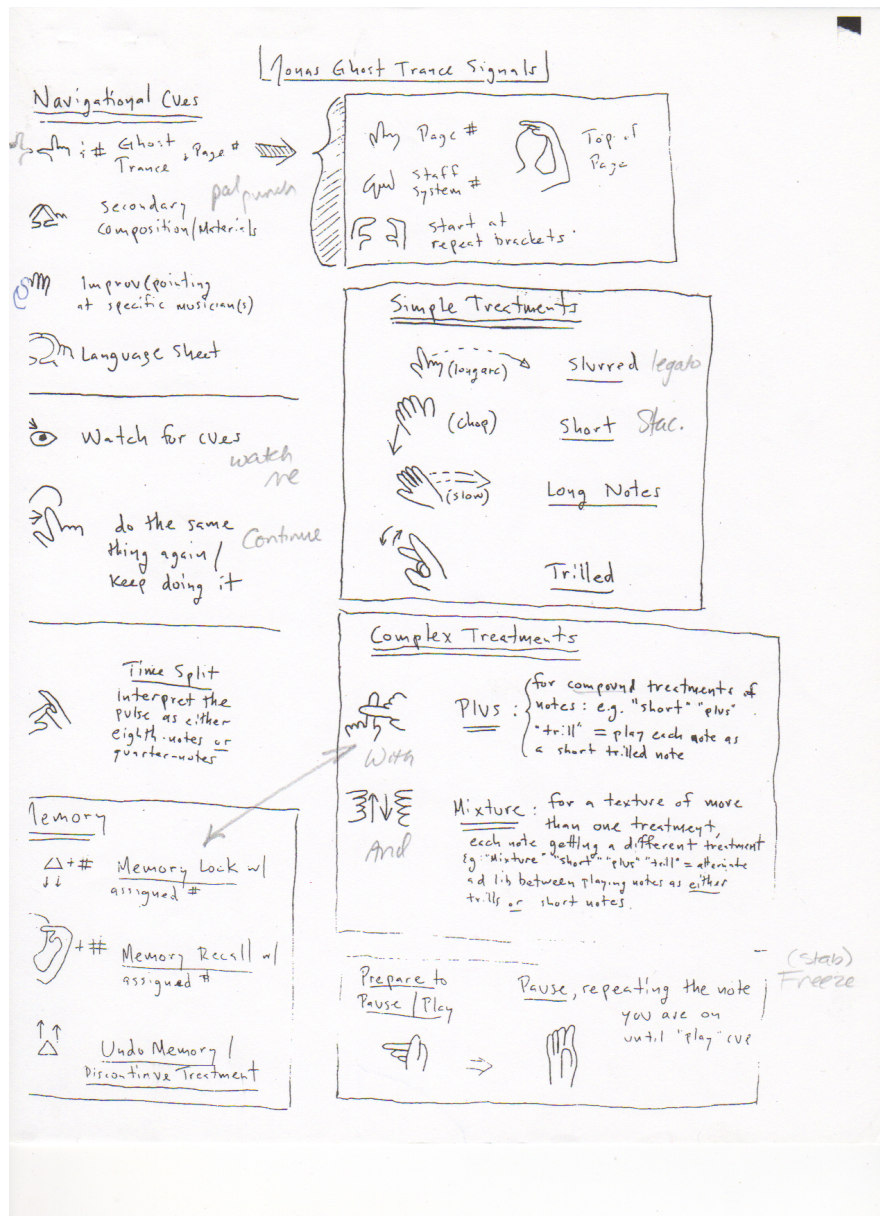 Jonas Ghost Trance Signals
Navigational Cues
: # Ghost
Trance + Page #
secondary
composition/Materials
Improv (pointing
at specific musician(s)
Language sheet
Watch for cues
watch
me
do the same
thing again /
keep doing it
Continue
Time Split
Interpret the
pulse as either
eighth-notes or
quarter-notes
Memory
+ #
Memory Lock w/
assigned #
+ #
Memory Recall w/
assigned #
Undo Memory /
Discontinue Treatment
Page #
Top of
Page
staff
system #
start at
repeat brackets
Simple Treatments
(long arc)
slurred legato
(chop)
short Stac.
(slow)
Long Notes
Trilled
Complex Treatments
With
Plus :
for compound treatments of
notes : e.g. "short" "plus"
"trill" = play each note as
a short trilled note
And
Mixture : for a texture of more
than one treatment,
each note getting a different treatment
Eg: "Mixture" "short" "plus" "trill" = alternate
ad lib between playing notes as either
trills or short notes.
Prepare to
Pause / Play
Pause, repeating the note
you are on
until "play" cue
(stab)
Freeze